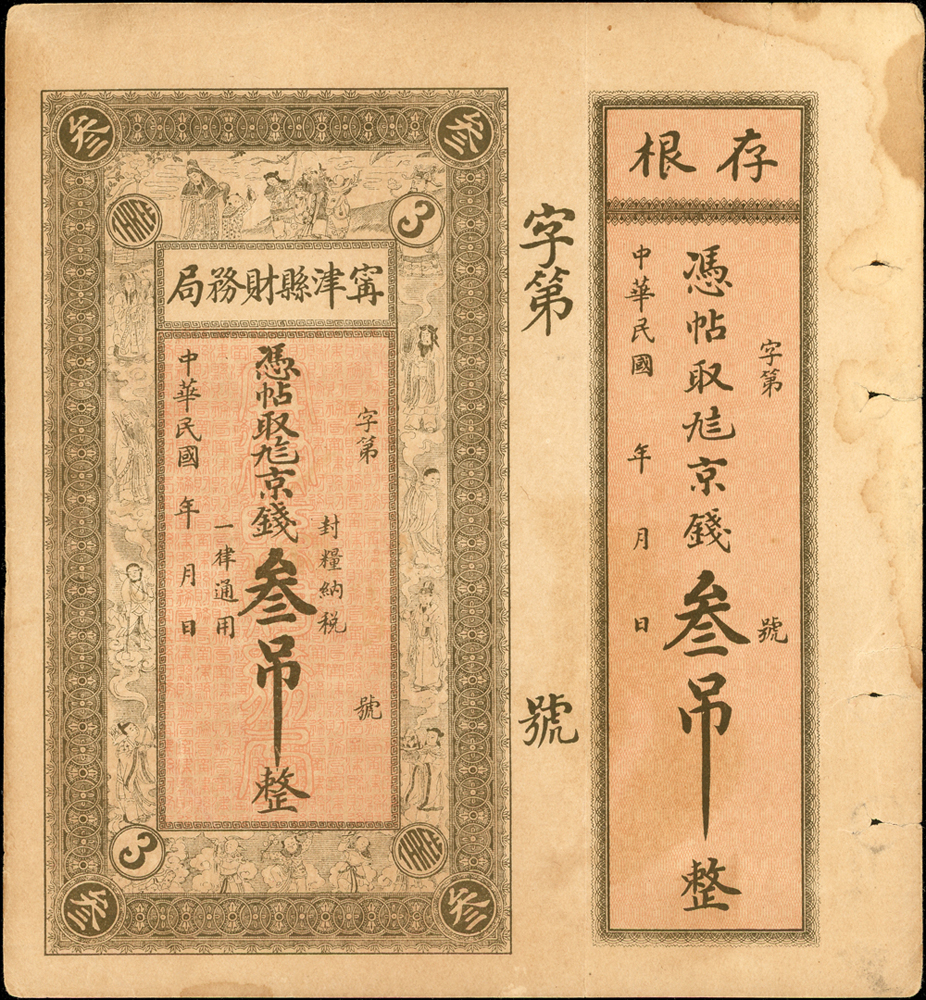 叁
叁
THREE
3
甯津縣財務局
字第
號
封糧納税
憑帖取
京錢叁吊整
一律通用
中華民國
年
月
日
3
THREE
叁
叁
字第
號
存根
字第
號
憑帖取
京錢叁吊整
中華民國
年
月
日